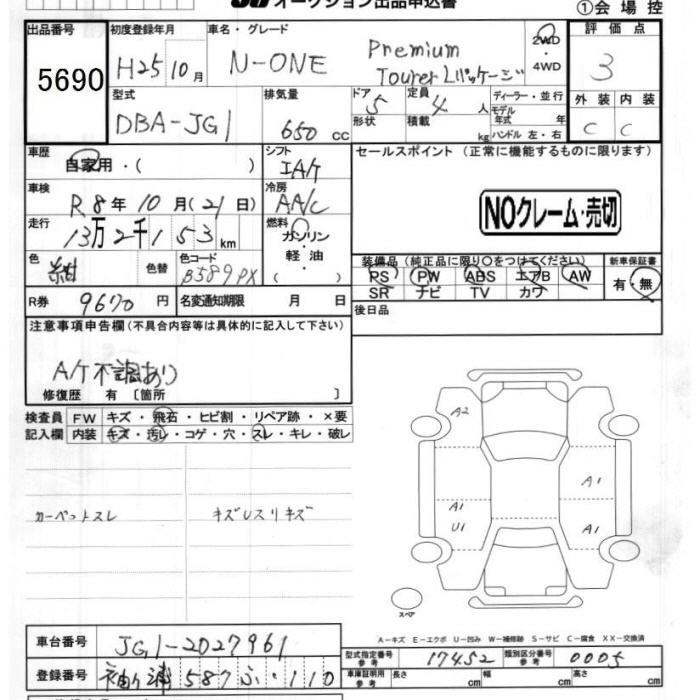 オークション出品申込書
①会場控
出品番号 初度登録年月 車名・グレード 評価点
5690 H25 10月 N-ONE Premium Tourer Lパッケージ 2WD・4WD 3
型式 排気量 ドア 定員 ディーラー・並行
DBA-JG1 650cc 5 4人 モデル年式 年 外装 内装
形状 積載 kg ハンドル 左・右 C C
車歴 シフト セールスポイント (正常に機能するものに限ります)
自家用・( ) IA/T
車検 冷房
R8年10月(21日) AA/C NOクレーム・売切
走行 燃料
13万2千153km ガソリン・軽油・
装備品 (純正品に限り○をつけてください) 新車保証書
色 色替 色コード PS PW ABS エアB AW 有・無
紺 B589PX SR ナビ TV カワ
R券 9670円 名変通知期限 月 日 後日品
注意事項申告欄(不具合内容等は具体的に記入して下さい)
A/T不調あり
修復歴 有〔箇所 〕
検査員 FW キズ・飛石・ヒビ割・リペア跡・×要
記入欄 内装 キズ・汚レ・コゲ・穴・スレ・キレ・破レ
カーペットスレ
A2
A1
A1
U1
A1
スペア
A-キズ E-エクボ U-凹み W-補修跡 S-サビ C-腐食 XX-交換済
車台番号 JG1-2027961 型式指定番号 参考 17452 類別区分番号 参考 0005
登録番号 袖ヶ浦 587 ふ・110 車庫証明用 参考 長さ cm 幅 cm 高さ cm